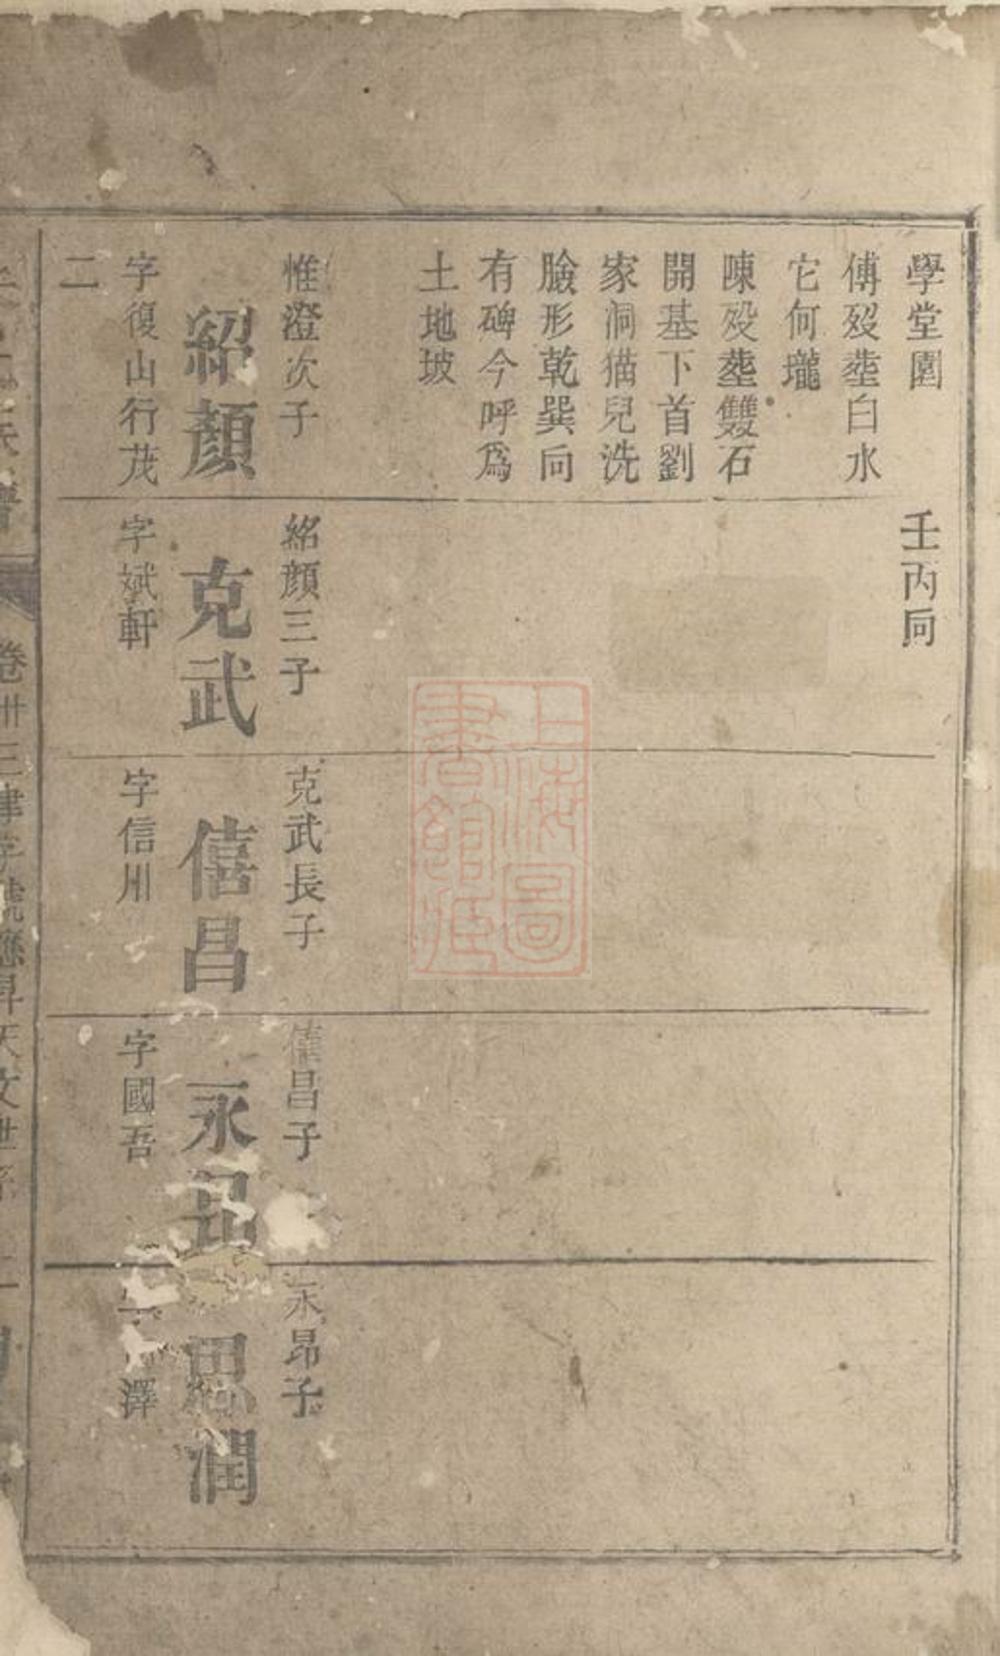 學堂園
傅歿塟白水
它何壠
陳歿塟雙石
開基下首劉
家洞猫兒洗
臉形乾巽向
有碑今呼爲
土地坡
惟澄次子
紹顏
字復山行茂
二
壬丙向
紹顏三子
克武
字斌軒
克武長子
僖昌
字信川
僖昌子
永昂
字國吾
永昂子
思潤
澤
卷卅三聿字號應昇天文世系
上海圖書館藏